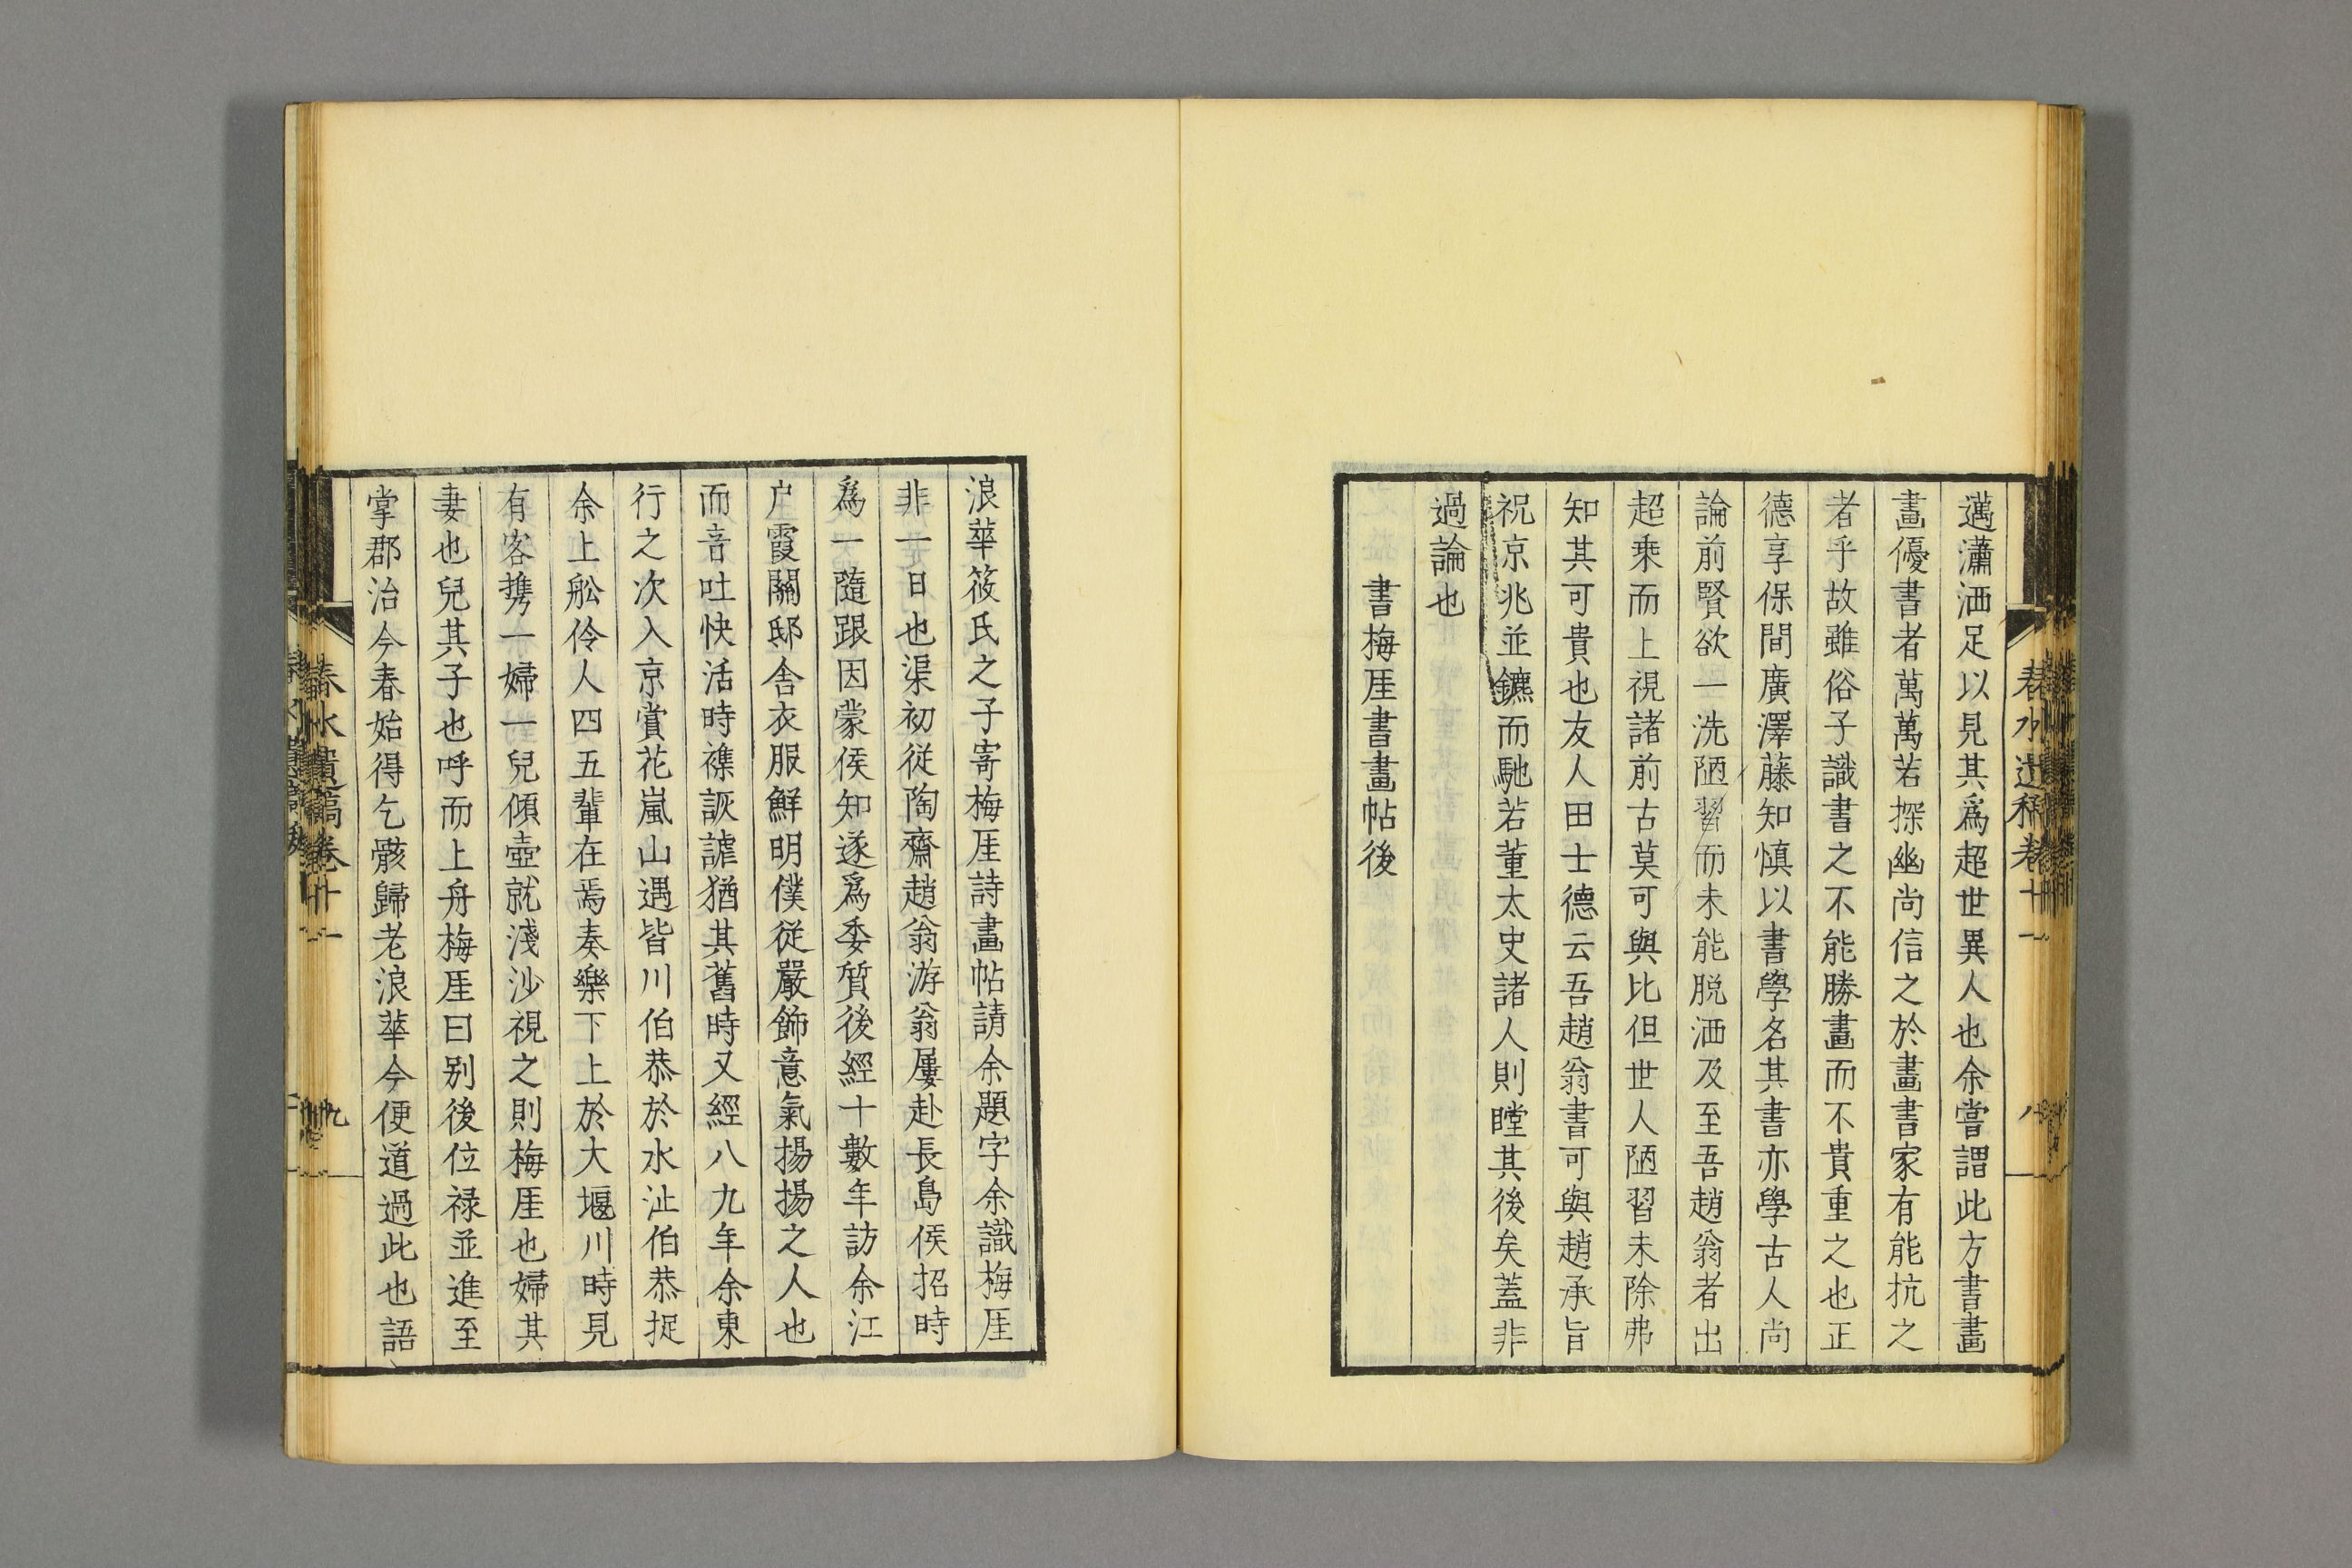 春水遺稿卷十一
八
邁瀟洒足以見其爲超世異人也余嘗謂此方書畫
畫優書者萬萬若探幽尚信之於畫書家有能抗之
者乎故雖俗子識書之不能勝畫而不貴重之也正
德享保間廣澤藤知慎以書學名其書亦學古人尚
論前賢欲一洗陋習而未能脱洒及至吾趙翁者出
超乘而上視諸前古莫可與比但世人陋習未除弗
知其可貴也友人田士德云吾趙翁書可與趙承旨
祝京兆並鑣而馳若董太史諸人則瞠其後矣蓋非
過論也
書梅厓書畫帖後
浪華筱氏之子寄梅厓詩畫帖請余題字余識梅厓
非一日也渠初從陶齋趙翁游翁屢赴長島侯招時
爲一隨跟因蒙侯知遂爲委質後經十數年訪余江
户霞關邸舍衣服鮮明僕從嚴飾意氣揚揚之人也
而音吐快活時襍詼謔猶其舊時又經八九年余東
行之次入京賞花嵐山遇皆川伯恭於水沚伯恭捉
余上舩伶人四五輩在焉奏樂下上於大堰川時見
有客携一婦一兒傾壺就淺沙視之則梅厓也婦其
妻也兒其子也呼而上舟梅厓曰别後位禄並進至
掌郡治今春始得乞骸歸老浪華今便道過此也語
春水遺稿卷十一
九